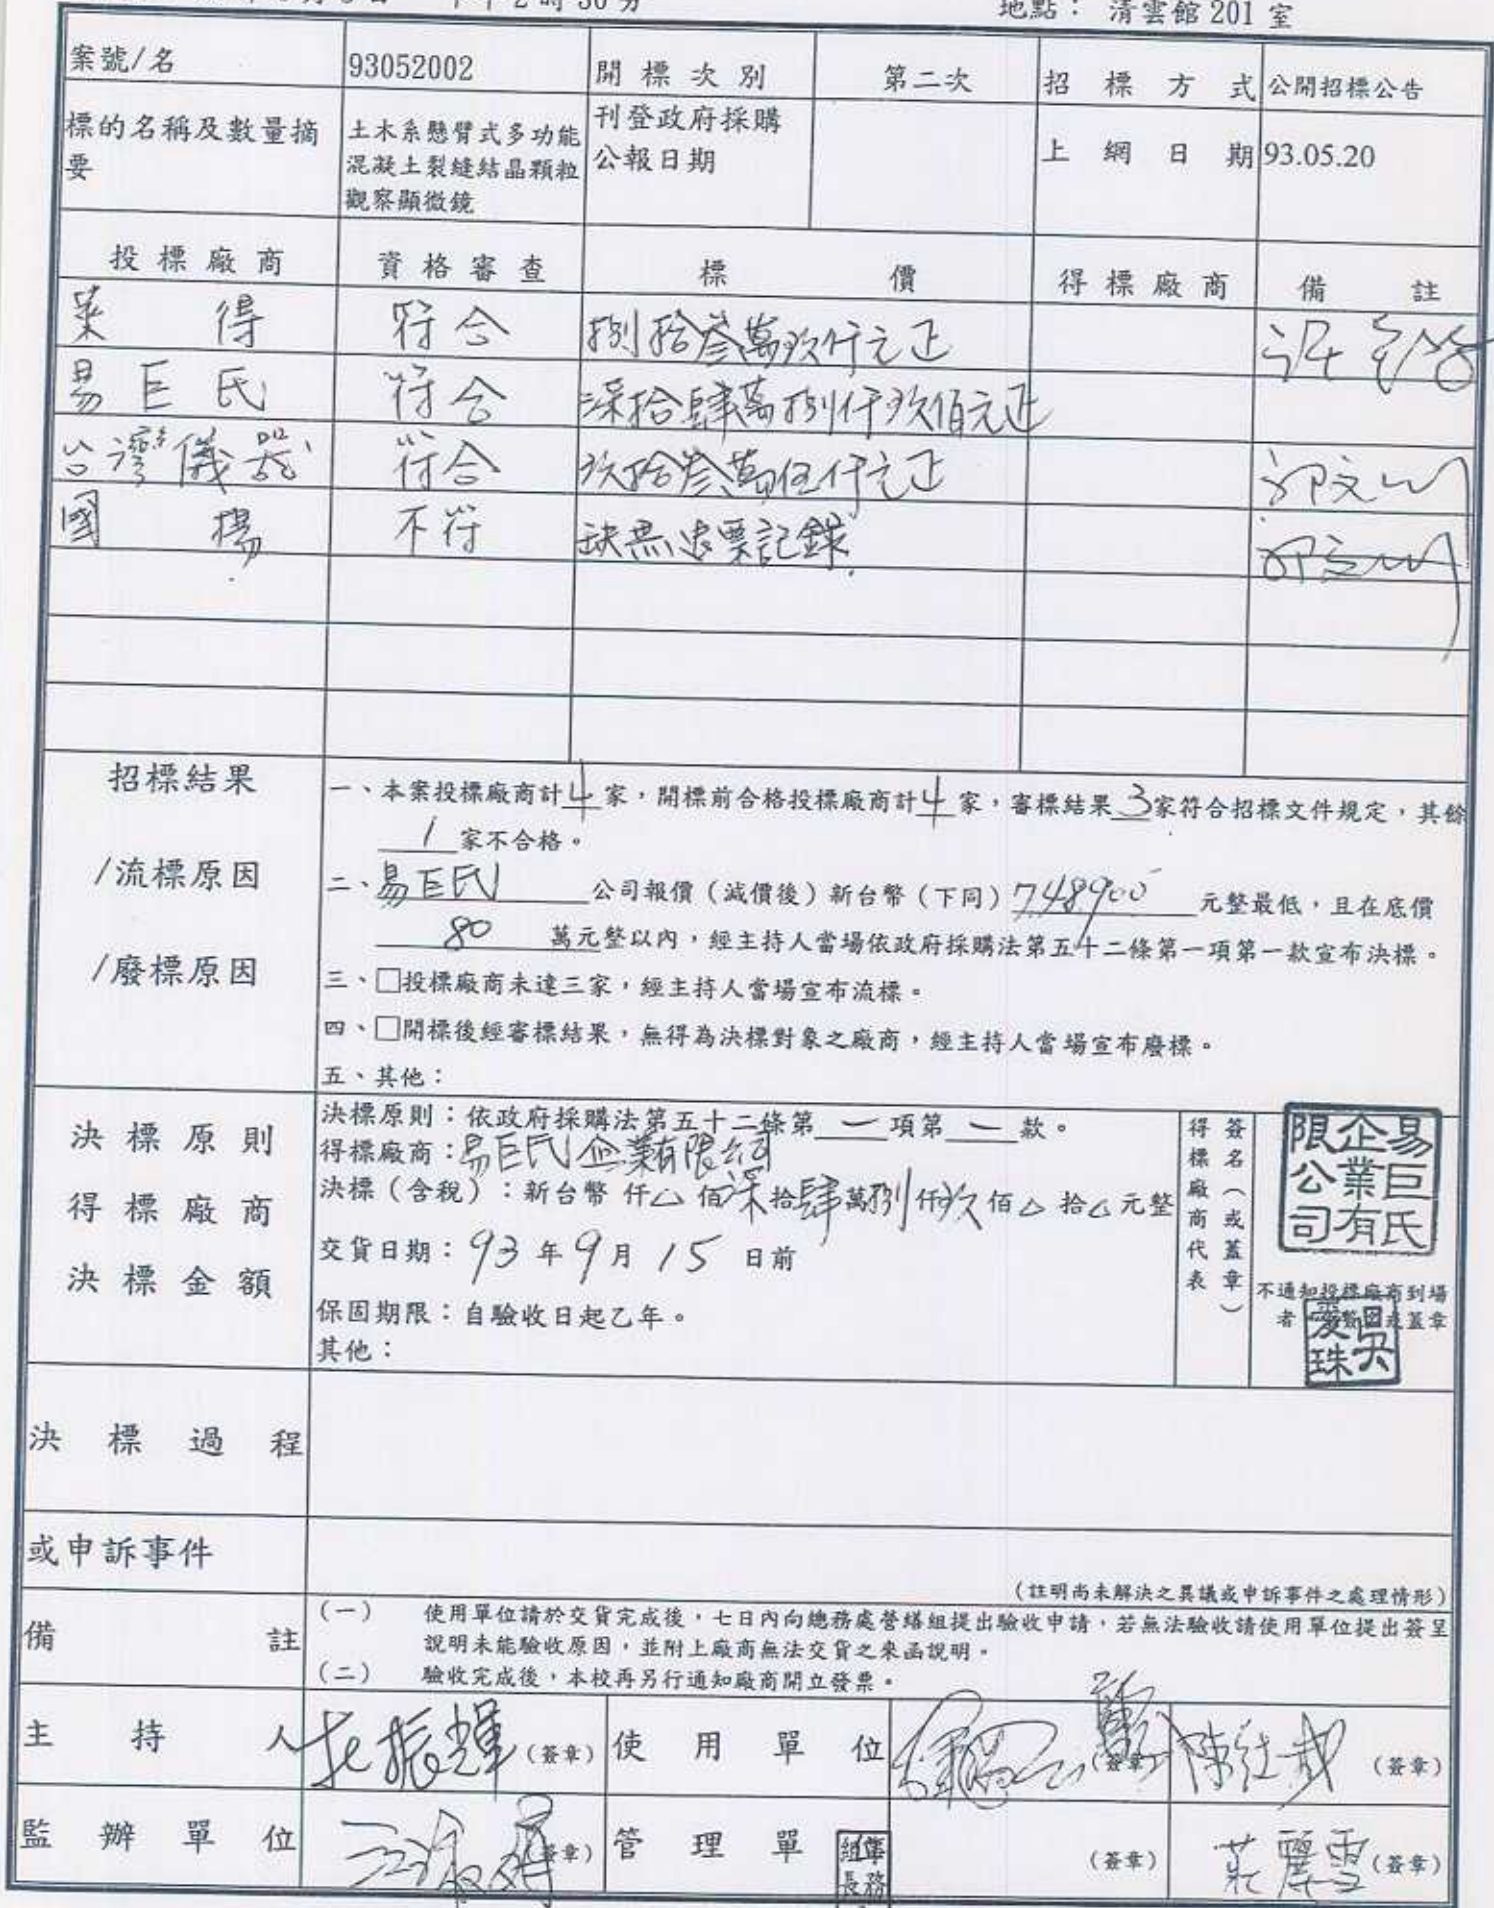 2時30分 地點： 清雲館201室
案號/名 93052002 開標次別 第二次 招標方式 公開招標公告
標的名稱及數量摘要 土木系懸臂式多功能混凝土裂縫結晶顆粒觀察顯微鏡 刊登政府採購公報日期 上網日期 93.05.20
投標廠商 資格審查 標價 得標廠商 備註
萊得 符合 捌拾叁萬玖仟元正
易巨氏 符合 柒拾肆萬捌仟玖佰元正
台灣儀器 符合 玖拾叁萬伍仟元正
國揚 不符 缺無退票記錄
招標結果
/流標原因
/廢標原因
一、本案投標廠商計4家，開標前合格投標廠商計4家，審標結果3家符合招標文件規定，其餘
1家不合格。
二、易巨氏公司報價（減價後）新台幣（下同）748900元整最低，且在底價
80萬元整以內，經主持人當場依政府採購法第五十二條第一項第一款宣布決標。
三、□投標廠商未達三家，經主持人當場宣布流標。
四、□開標後經審標結果，無得為決標對象之廠商，經主持人當場宣布廢標。
五、其他：
決標原則
得標廠商
決標金額
決標原則：依政府採購法第五十二條第一項第一款。
得標廠商：易巨氏企業有限公司
決標（含稅）：新台幣 仟△佰柒拾肆萬捌仟玖佰△拾△元整
交貨日期：93年9月15日前
保固期限：自驗收日起乙年。
其他：
得標廠商代表
簽名（或蓋章）
易巨氏企業有限公司
不通知投標廠商到場
者
蓋章
決標過程
或申訴事件
（註明尚未解決之異議或申訴事件之處理情形）
備註
（一） 使用單位請於交貨完成後，七日內向總務處營繕組提出驗收申請，若無法驗收請使用單位提出簽呈
說明未能驗收原因，並附上廠商無法交貨之來函說明。
（二） 驗收完成後，本校再另行通知廠商開立發票。
主持人 （簽章） 使用單位 （簽章） （簽章）
監辦單位 （簽章） 管理單 （簽章） 莊麗雪（簽章）